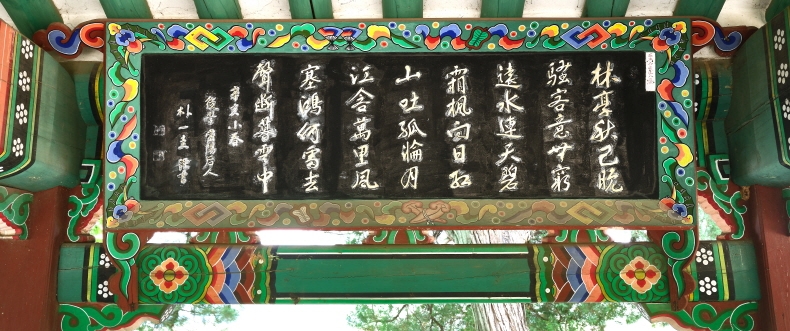 林亭秋已晚
騷客意無窮
遠水連天碧
霜楓向日紅
山吐孤輪月
江含萬里風
塞鴻何處去
聲斷暮雲中
辛亥小春
人
朴一圭 謹書